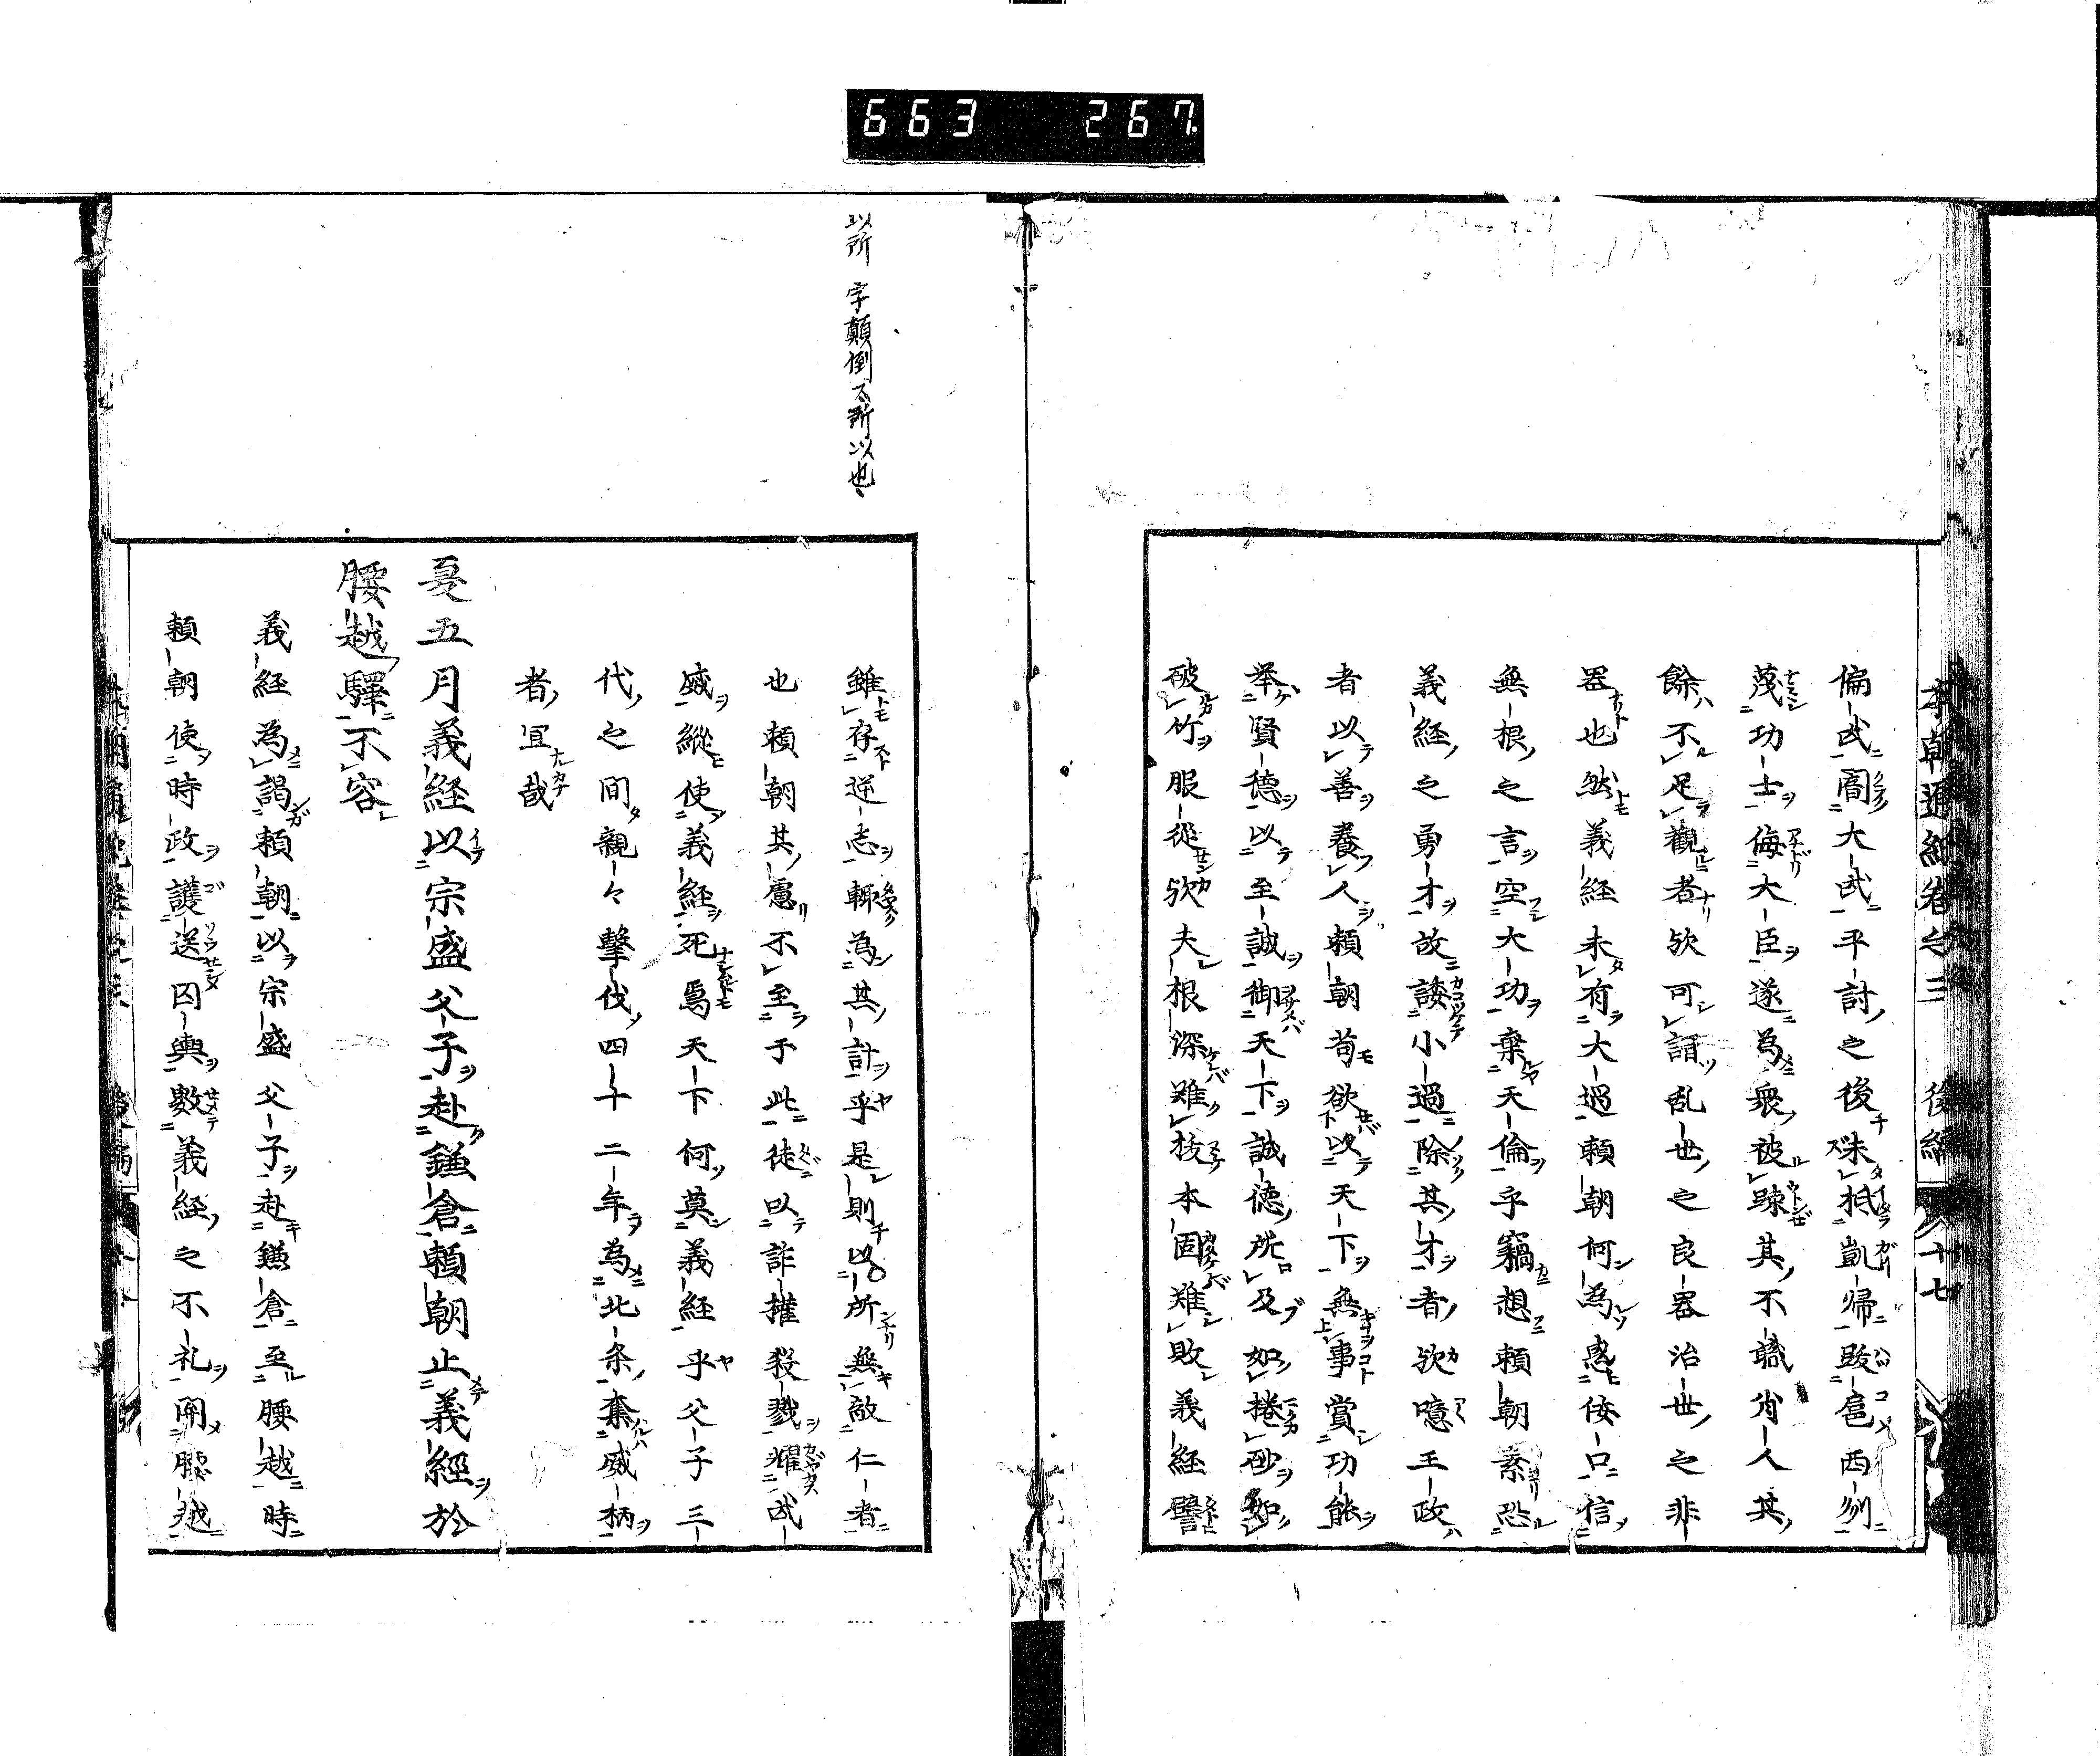 663 267
本朝通紀卷之三 後編 十七
偏武閫大武平討之後殊抵凱歸跋扈西州
蔑功士侮大臣遂為衆被踈其不識肖人其
餘不足觀者欤可謂乱世之良器治世之非
器也然義経未有大過頼朝何為惑佞口信
無根之言空大功棄天倫乎竊想頼朝素恐
義経之勇才故諉小過除其才者欤噫王政
者以善養人頼朝苟欲以天下無事賞功能
举賢德以至誠御天下誠德所及如捲砂如
破竹服從欤夫根深难抜本固难敗義経譬
以所 字顛倒又所以也
雖存逆志輙為其計乎是則以所無敵仁者
也頼朝其慮不至于此徒以詐權殺戮耀武
威縱使義経死焉天下何莫義経乎父子三
代之間親々擊伐四十二年為北条奪威柄
者冝哉
夏五月義経以宗盛父子赴鎌倉頼朝止義經於
腰越驛不容
義経為謁頼朝以宗盛父子赴鎌倉至腰越時
頼朝使時政護送囚輿數義経之不礼閉腰越